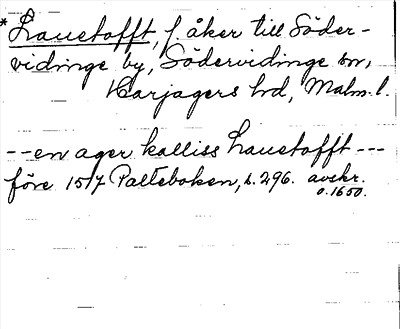 *Laustofft, f. åker till Söder-
vidinge by, Södervidinge sn,
Harjagers hd, Malm. l.
--en ager kalliss Laustofft ---
före 1517 Palteboken, s. 296. avskr.
o. 1650.